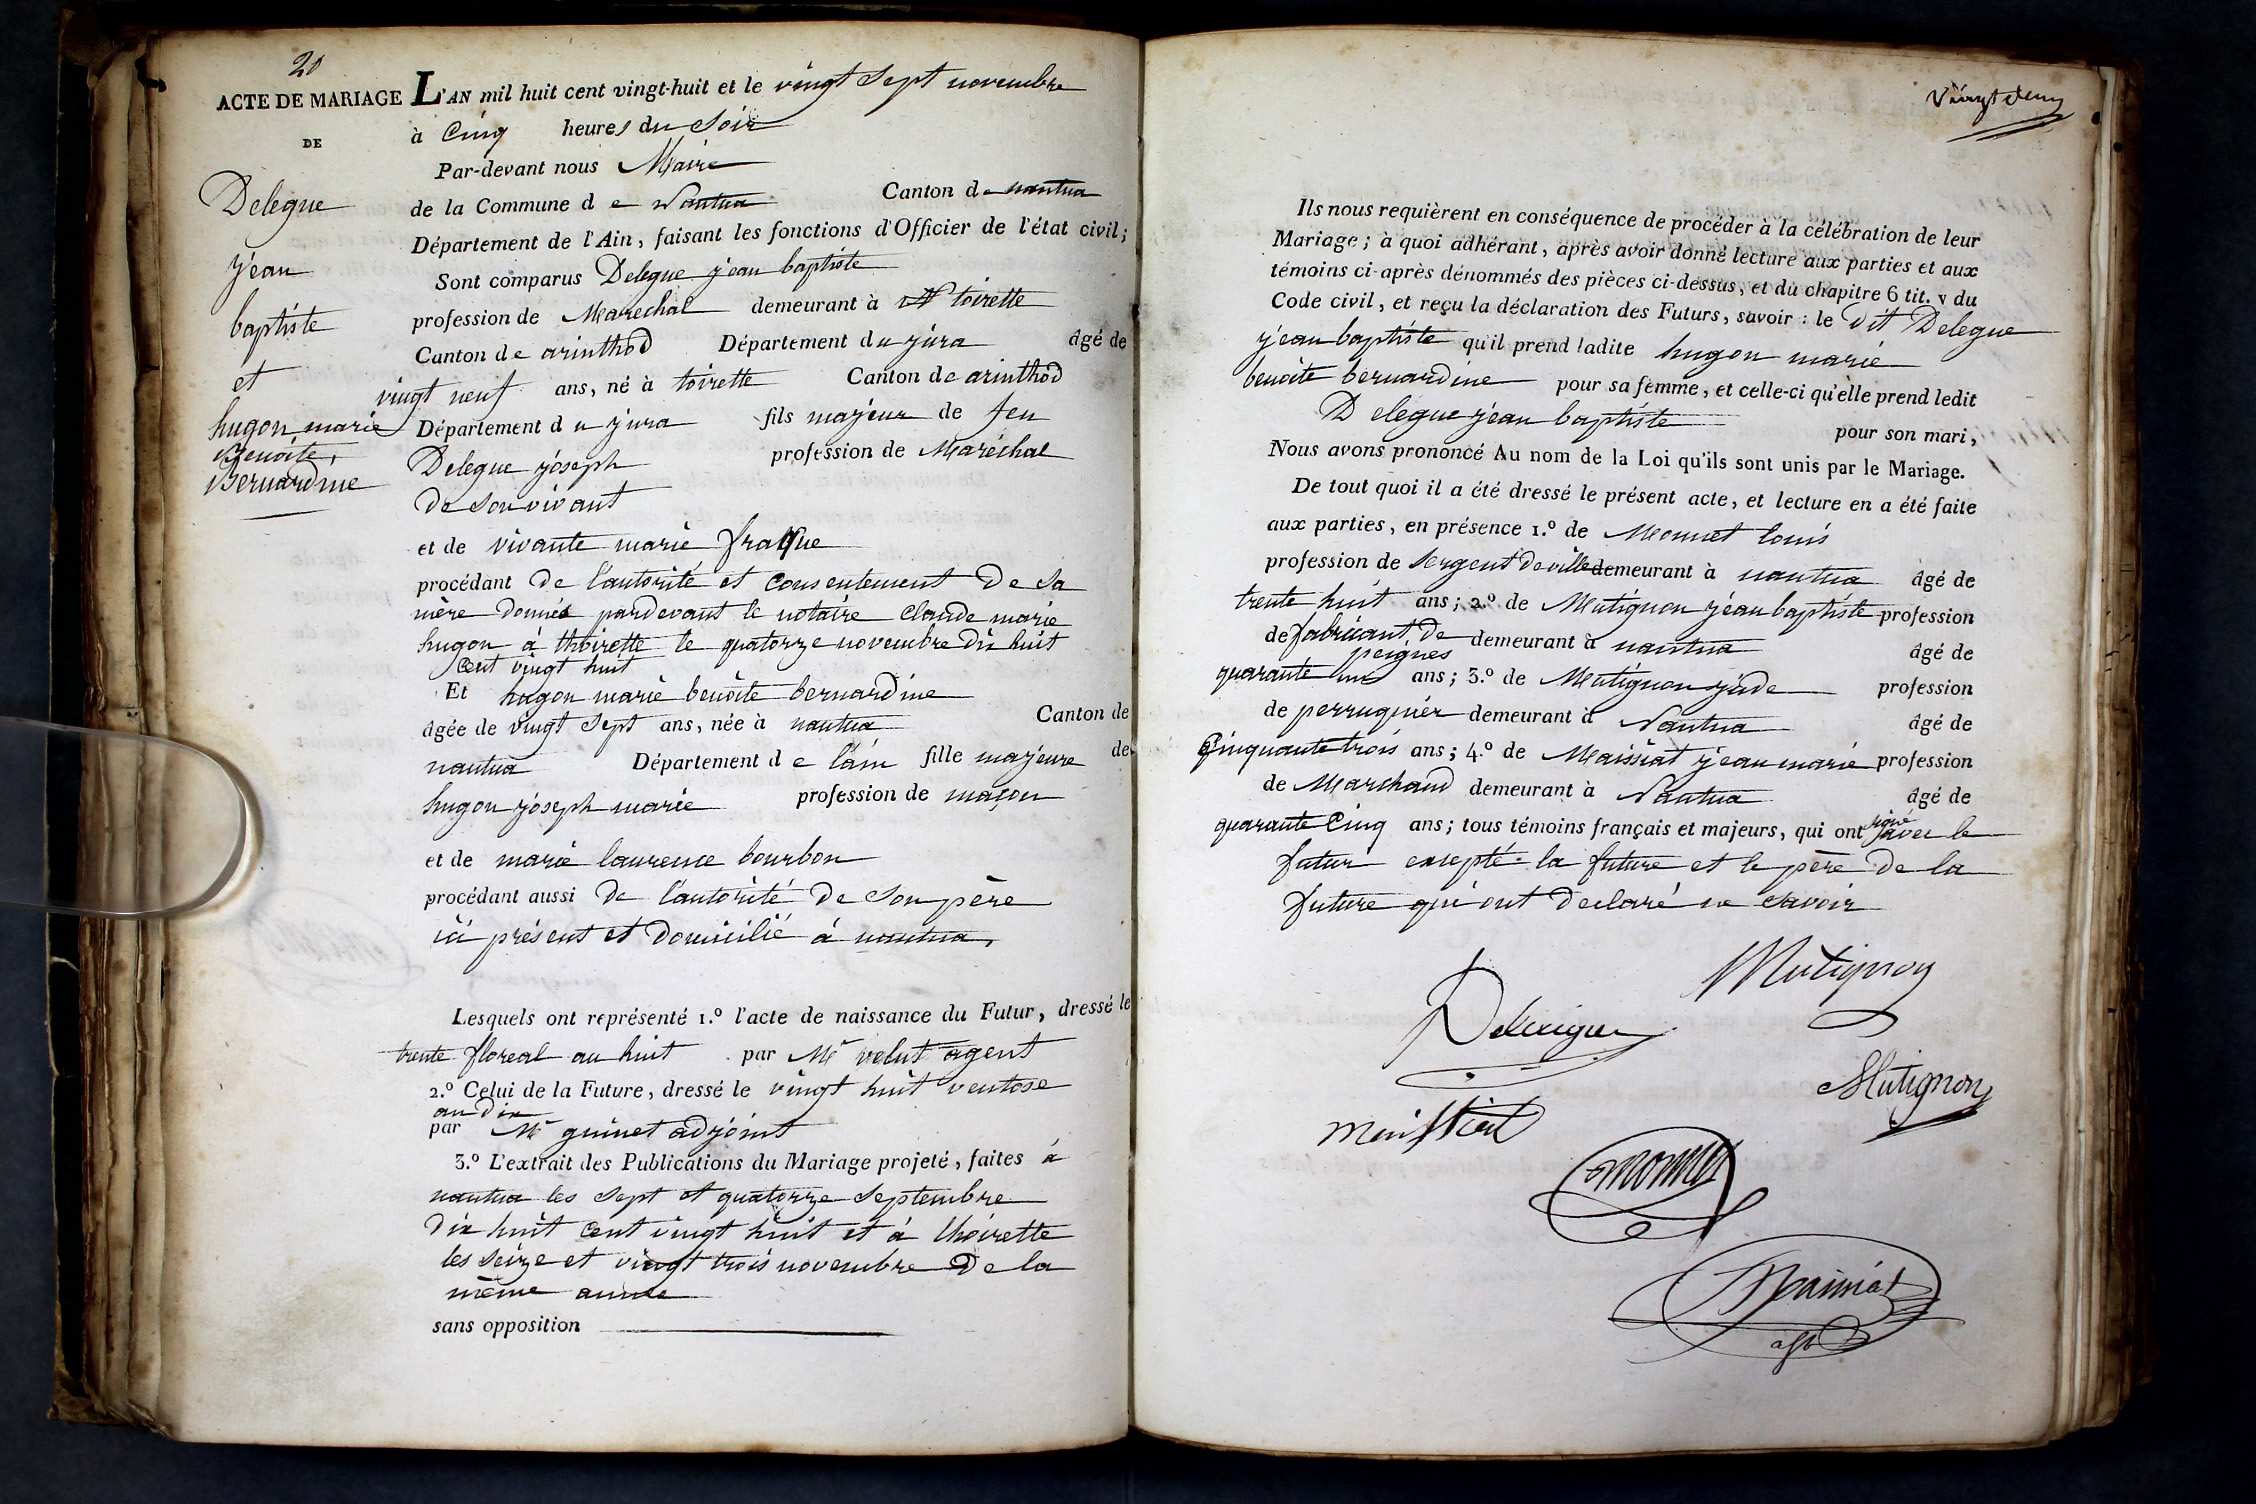 20
ACTE DE MARIAGE
DE
Delegue
jean
baptiste
et
hugon marie
Benoite,
Bernardine
L'AN mil huit cent vingt-huit et le vingt sept novembre
à Cinq heures du Soir
Par-devant nous Maire
de la Commune de Nantua Canton de nantua
Département de l'Ain, faisant les fonctions d'Officier de l'état civil;
Sont comparus Delegue jean baptiste
profession de Marechal demeurant à toirette
Canton de arinthod Département du jura âgé de
vingt neuf ans, né à toirette Canton de arinthod
Département du jura fils majeur de feu
Delegue joseph profession de Maréchal
De Son vivant
et de vivante marie
procédant De l'autorité et consentement De Sa
mère Donnés pardevant le notaire Claude marie
hugon à thoirette le quatorze novembre Dix huit
Cent vingt huit
Et hugon marie benoite bernardine
âgée de vingt Sept ans, née à nantua Canton de
nantua Département de l'ain fille majeure de
hugon joseph marie profession de maçon
et de marie laurence bourbon
procédant aussi De l'autorité De Son père
ici présent et Domicilié à nantua,
Lesquels ont représenté 1.º l'acte de naissance du Futur, dressé le
trente floreal an huit par Mr velut agent
2.º Celui de la Future, dressé le vingt huit ventose
an Dix
par Mr guinet adjoint
3.º L'extrait des Publications du Mariage projeté, faites à
nantua les Sept et quatorze Septembre
Dix huit Cent vingt huit et à thoirette
les Seize et vingt trois novembre De la
même année
sans opposition
Vingt deux
Ils nous requièrent en conséquence de procéder à la célébration de leur
Mariage; à quoi adhérant, après avoir donné lecture aux parties et aux
témoins ci-après dénommés des pièces ci-dessus, et du chapitre 6 tit. v du
Code civil, et reçu la déclaration des Futurs, savoir : le Dit Delegue
jean baptiste qu'il prend ladite hugon marie
benoite bernardine pour sa femme, et celle-ci qu'elle prend ledit
Delegue jean baptiste pour son mari,
Nous avons prononcé Au nom de la Loi qu'ils sont unis par le Mariage.
De tout quoi il a été dressé le présent acte, et lecture en a été faite
aux parties, en présence 1.º de Monnet louis
profession de Sergent De ville demeurant à nantua âgé de
trente huit ans; 2.º de Mutignon jean baptiste profession
de fabricant De peignes demeurant à nantua âgé de
quarante un ans; 3.º de Mutignon jude profession
de perruquier demeurant à Nantua âgé de
Cinquante trois ans; 4.º de Maissiat jean marie profession
de Marchand demeurant à Nantua âgé de
quarante Cinq ans; tous témoins français et majeurs, qui ont signé avec le
futur excepté la future et le père De la
future qui ont Declaré ne Savoir
Mutignon
Mutignon
monnet